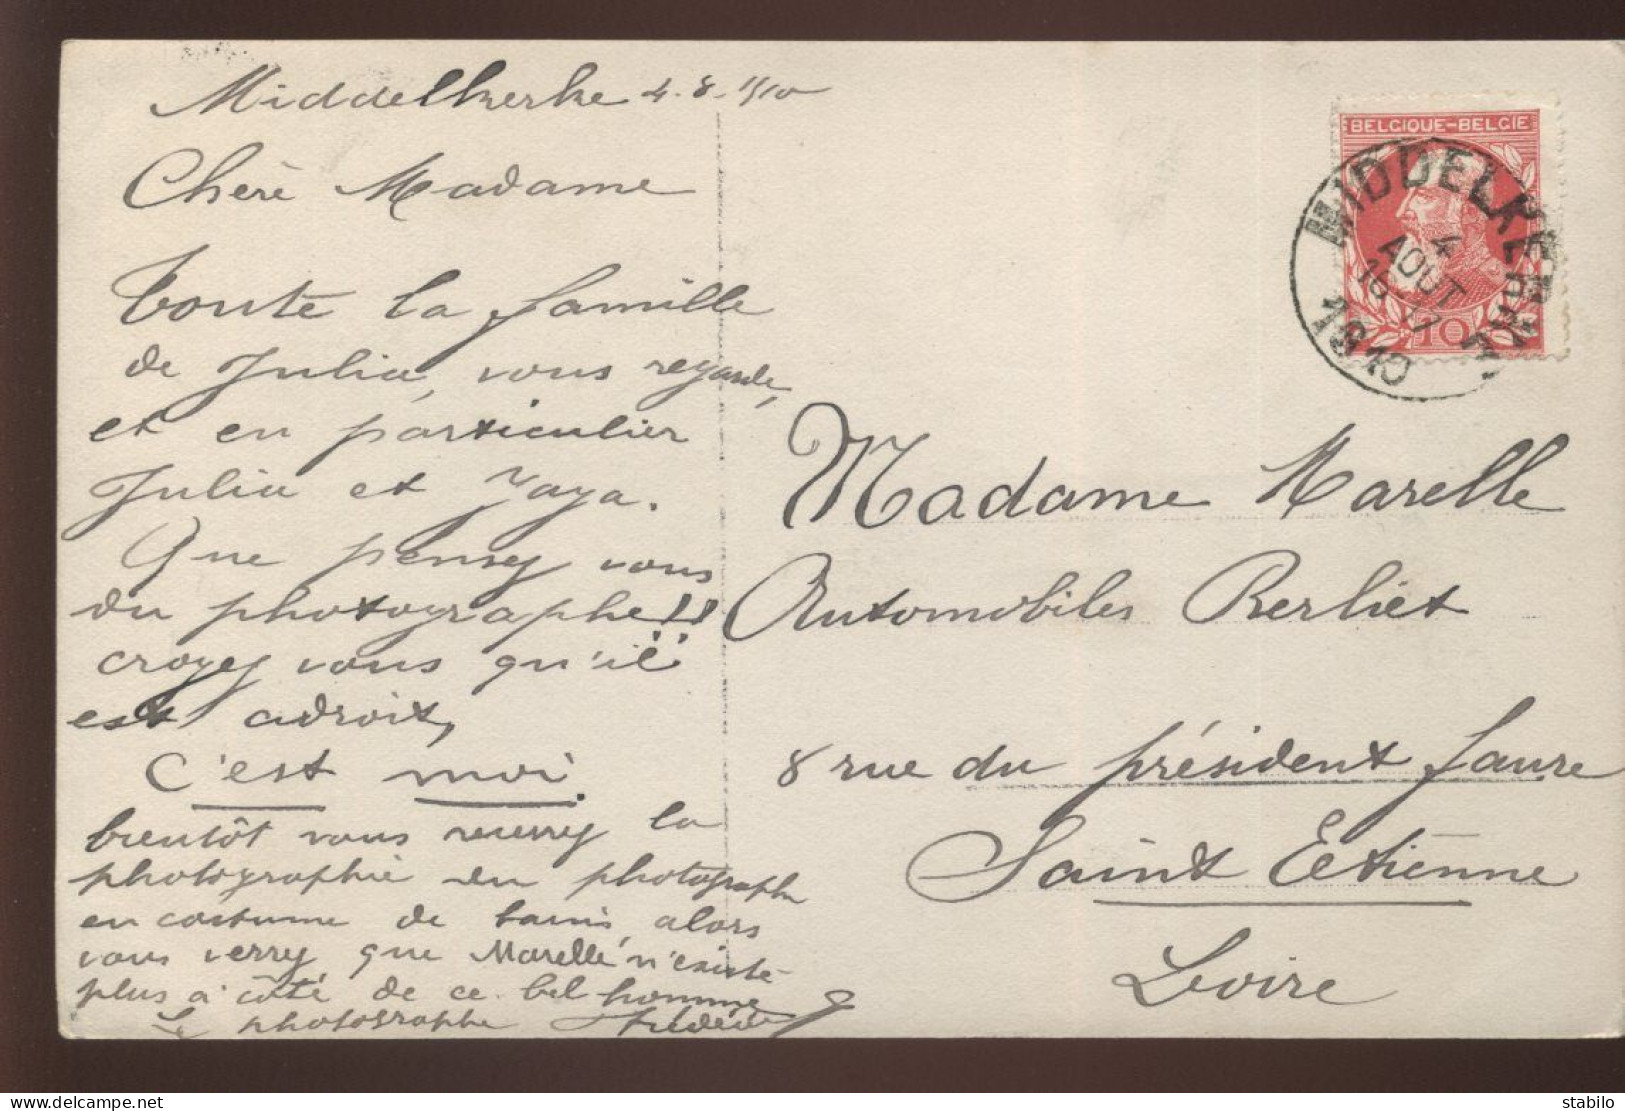 Middelkerke 4-8-1910
Chère Madame
Toute la famille
de Julia, vous regarde,
et en particulier
Julia et Yaya.
Que pensez vous
du photographe!!
croyez vous qu'il
est adroit,
C'est moi.
bientôt vous recevrez la
photographie du photographe
en costume de bains, alors
vous verrez que Marelle n'existe
plus à côté de ce bel homme
Le photographe
BELGIQUE-BELGIE
10
MIDDELKERKE
4
AOUT
16-17
1910
Madame Marelle
Automobiles Berliet
8 rue du président faure
Saint Etienne
Loire
delcampe.net
stabilo